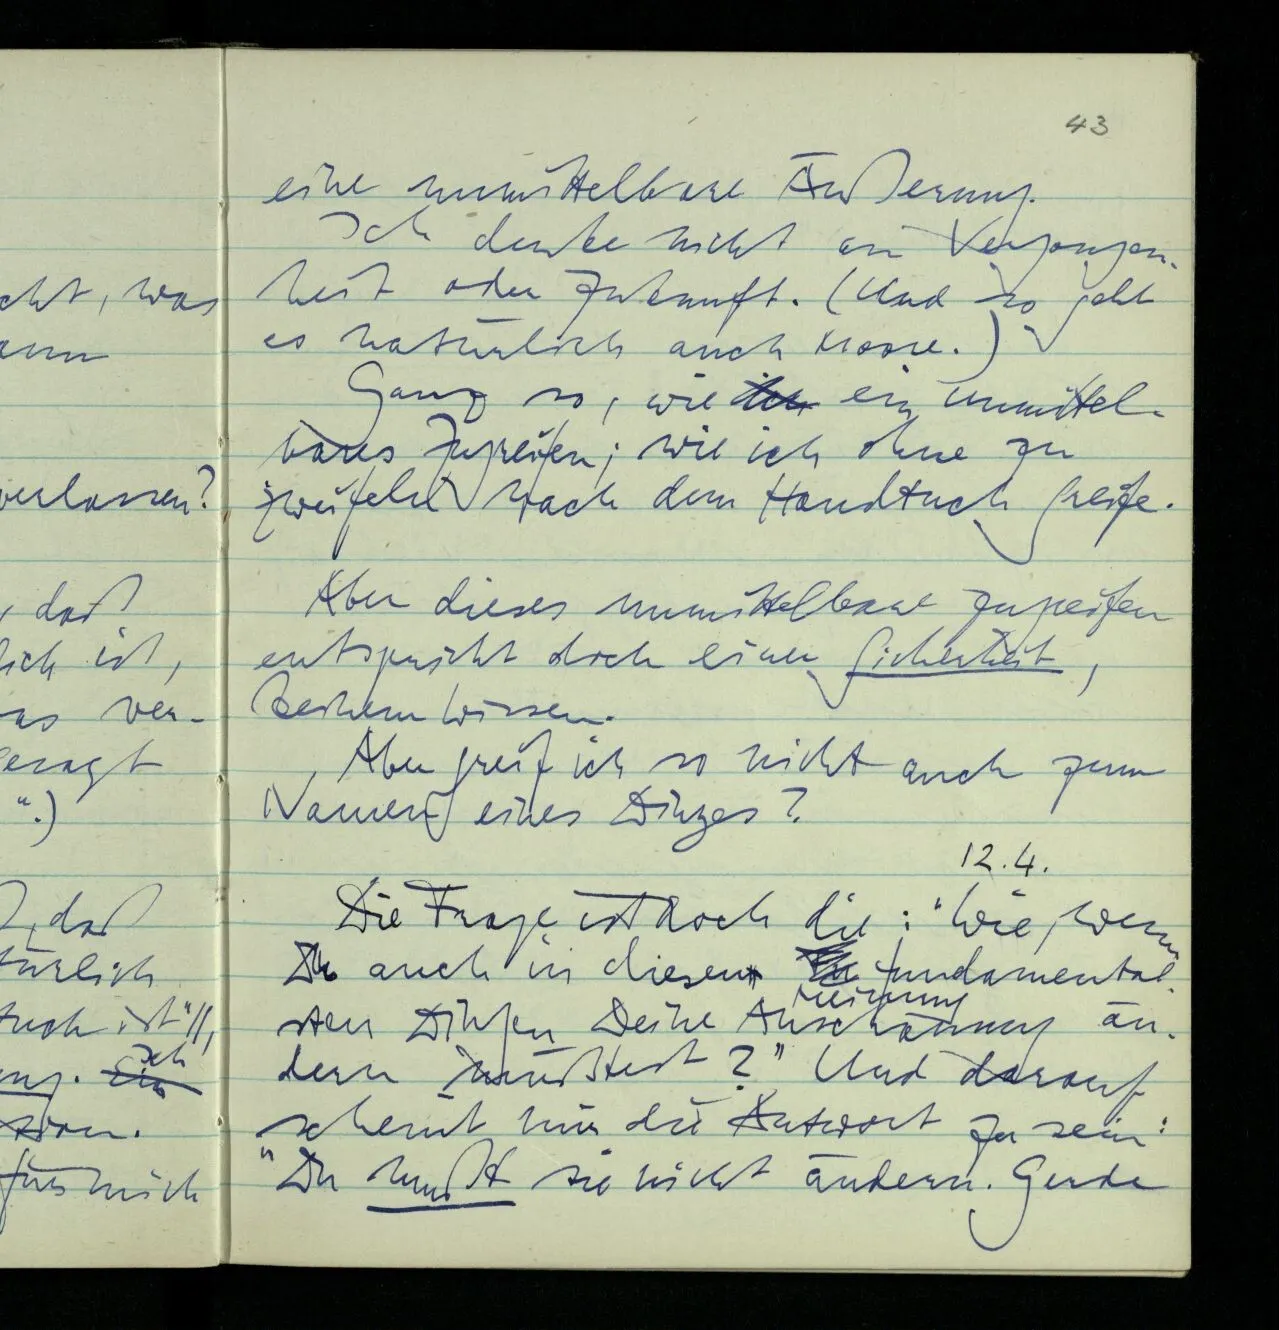 43
eine unmittelbare Äußerung.
Ich denke nicht an Vergangen-
cht, was
heit oder Zukunft. (Und so geht
es natürlich auch Moore.)
Ganz so, wie ein unmittel-
bares Zugreifen; wie ich ohne zu
verlassen?
zweifeln nach dem Handtuch greife.
Aber dieses unmittelbare Zugreifen
, daß
entspricht doch einer Sicherheit,
lich ist,
keinem Wissen.
as ver-
Aber greif ich so nicht auch zum
gesagt
Namen eines Dinges?
".)
12.4.
Die Frage ist doch die: "Wie, wenn
, daß
Du auch in diesen fundamental-
türlich
Meinung
sten Dingen Deine Anschauung än-
tuch ist"//,
dern müßtest?" Und darauf
ich
ein
scheint mir die Antwort zu sein:
"Du mußt sie nicht ändern. Gerde
für mich